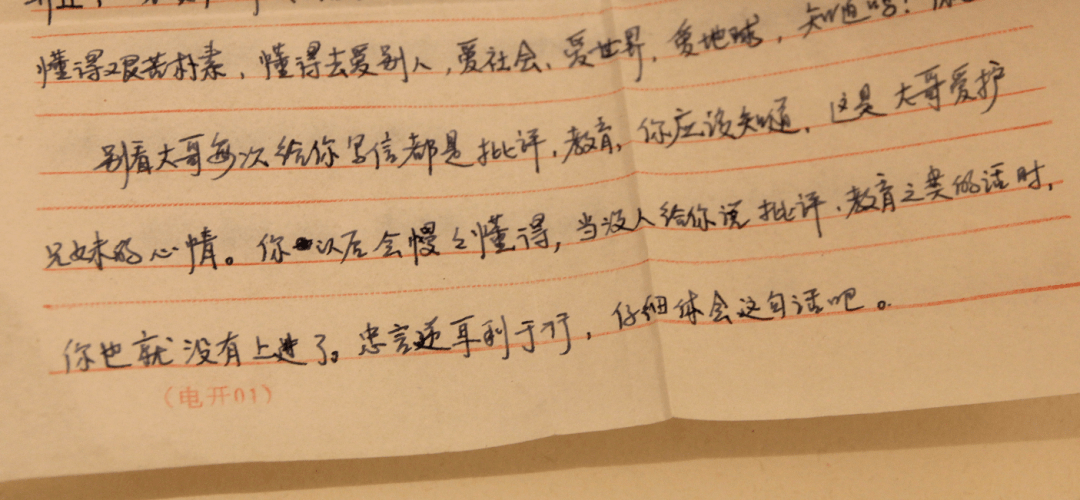 懂得艰苦朴素，懂得去爱别人，爱社会，爱世界，爱地球，知道吗？
别看大哥每次给你写信都是批评，教育，你应该知道，这是大哥爱护
兄妹的心情。你以后会慢々懂得，当没人给你说批评，教育之类的话时，
你也就没有上进了。忠言逆耳利于行，仔细体会这句话吧。
（电开01）